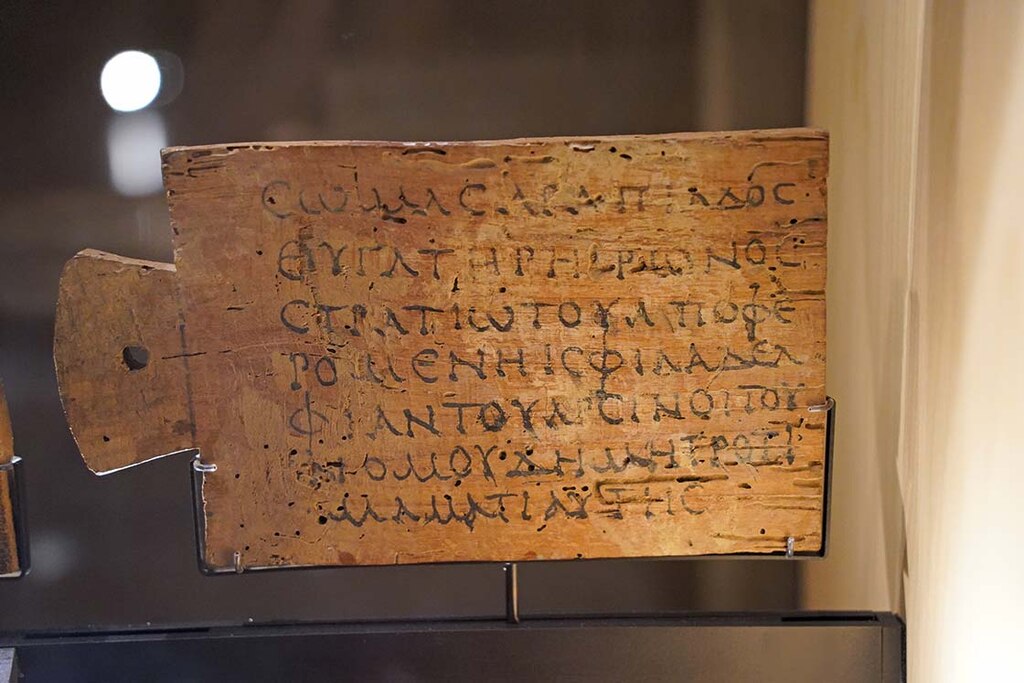 ϹΩΜΑ ϹΑΡΑΠΙΑΔΟϹ
ΘΥΓΑΤΗΡ
ϹΤΡΑΤΙΩΤΟΥ ΑΠΟΦΕ
ΡΟΜΕΝΗ ΙϹ ΦΙΛΑΔΕΛ
ΦΙΑΝ ΤΟΥ ΑΡϹΙΝΟΙΤΟΥ
ΝΟΜΟΥ
ΜΑΜΑΤΙ ΑΥΤΗϹ